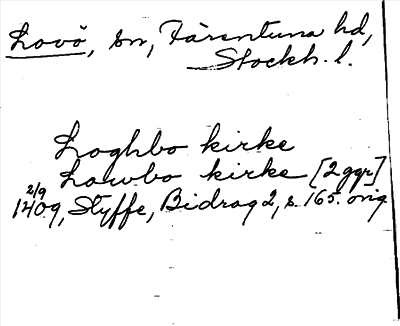 Lovö, sn, Färentuna hd,
Stockh. l.
Loghbo kirke
Lawbo kirke [2 ggr]
2/9
1409, Styffe, Bidrag 2, s. 165. orig